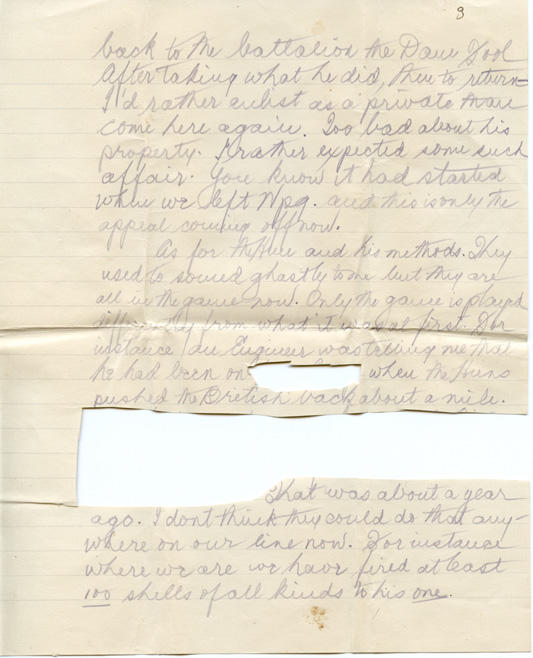 3
back to the battalion the Dam Fool
After taking what he did, then to return -
I'd rather enlist as a private than
come here again. Too bad about his
property. I rather expected some such
affair. You know it had started
when we left Wpg. and this is only the
appeal coming off now.
As for the Hun and his methods. They
used to sound ghastly to me but they are
all in the game now. Only the game is played
differently from what it was at first. For
instance an Engineer was telling me that
he had been on when the Huns
pushed the British back about a mile.
That was about a year
ago. I dont think they could do that any-
where on our line now. For instance
where we are we have fired at least
100 shells of all kinds to his one.